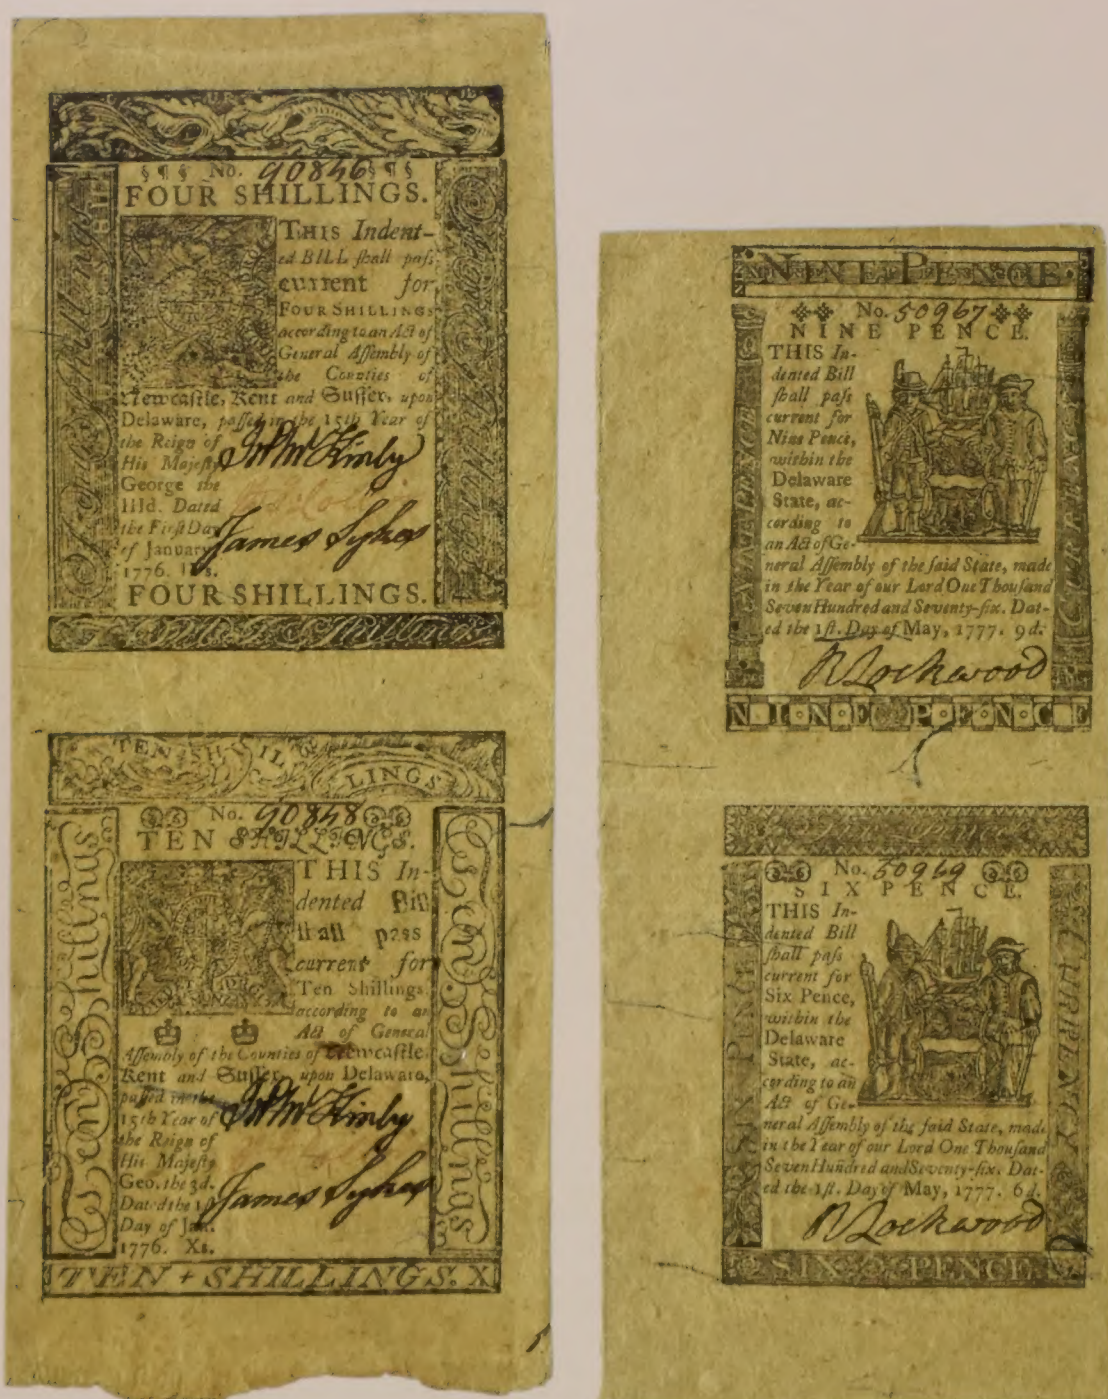 §¶§ No. 90846 §¶§
FOUR SHILLINGS.
THIS Indent-
ed BILL ſhall paſs
current for
FOUR SHILLINGS
according to an Act of
General Aſſembly of
the Counties of
Newcaſtle, Kent and Suſſex, upon
Delaware, paſſed in the 15th Year of
the Reign of
His Majeſty
George the
IIId. Dated
the Firſt Day
of January
1776. s.
James Sykes
FOUR SHILLINGS.
Shillings
TEN SHILLINGS
No. 90848
TEN SHILLINGS.
THIS In-
dented Bill
ſhall paſs
current for
Ten Shillings
according to an
Act of General
Aſſembly of the Counties of Newcaſtle
Kent and Suſſex, upon Delaware,
paſſed in the
15th Year of
the Reign of
His Majeſty
Geo. the 3d.
Dated the 1ſt
Day of Jan.
1776. Xs.
James Sykes
Ten Shillings
Ten Shillings
TEN + SHILLINGS. X
NINE PENCE
No. 50967
NINE PENCE.
THIS In-
dented Bill
ſhall paſs
current for
Nine Pence,
within the
Delaware
State, ac-
cording to
an Act of Ge-
neral Aſſembly of the ſaid State, made
in the Year of our Lord One Thouſand
Seven Hundred and Seventy-ſix. Dat-
ed the 1ſt. Day of May, 1777. 9d.
R Lockwood
CURRENCY
NINE PENCE
No. 50969
SIX PENCE.
THIS In-
dented Bill
ſhall paſs
current for
Six Pence,
within the
Delaware
State, ac-
cording to an
Act of Ge-
neral Aſſembly of the ſaid State, made
in the Year of our Lord One Thouſand
Seven Hundred and Seventy-ſix. Dat-
ed the 1ſt. Day of May, 1777. 6d.
R Lockwood
SIX PENCE
CURRENCY
SIX PENCE